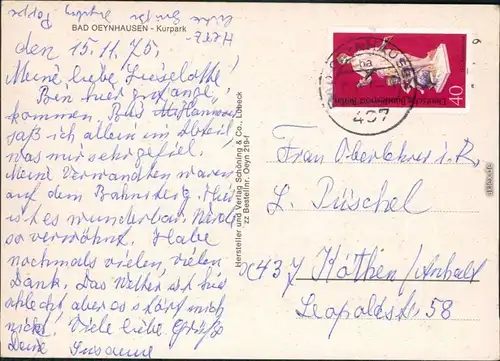 BAD OEYNHAUSEN - Kurpark
den 15.11.75.
Meine liebe Lieselotte!
Bin hier gut ange-
kommen. Bis Hannover
saß ich allein im Abteil
was mir sehr gefiel.
Meine Verwandten waren
auf dem Bahnsteg. Hier
ist es wunderbar. Werde
so verwöhnt. Habe
nochmals vielen, vielen
Dank. Das Wetter ist hier
schlecht, aber es stört mich
nicht. Viele liebe Grüße
Deine Susanne
Herz-
Hersteller und Verlag Schöning & Co., Lübeck
zz Bestellnr. Oeyn 219-f
Deutsche Bundespost Berlin
40
497
Frau Oberlehrer i. R.
L. Püschel
X437 Köthen/Anhalt
Leopoldstr. 58